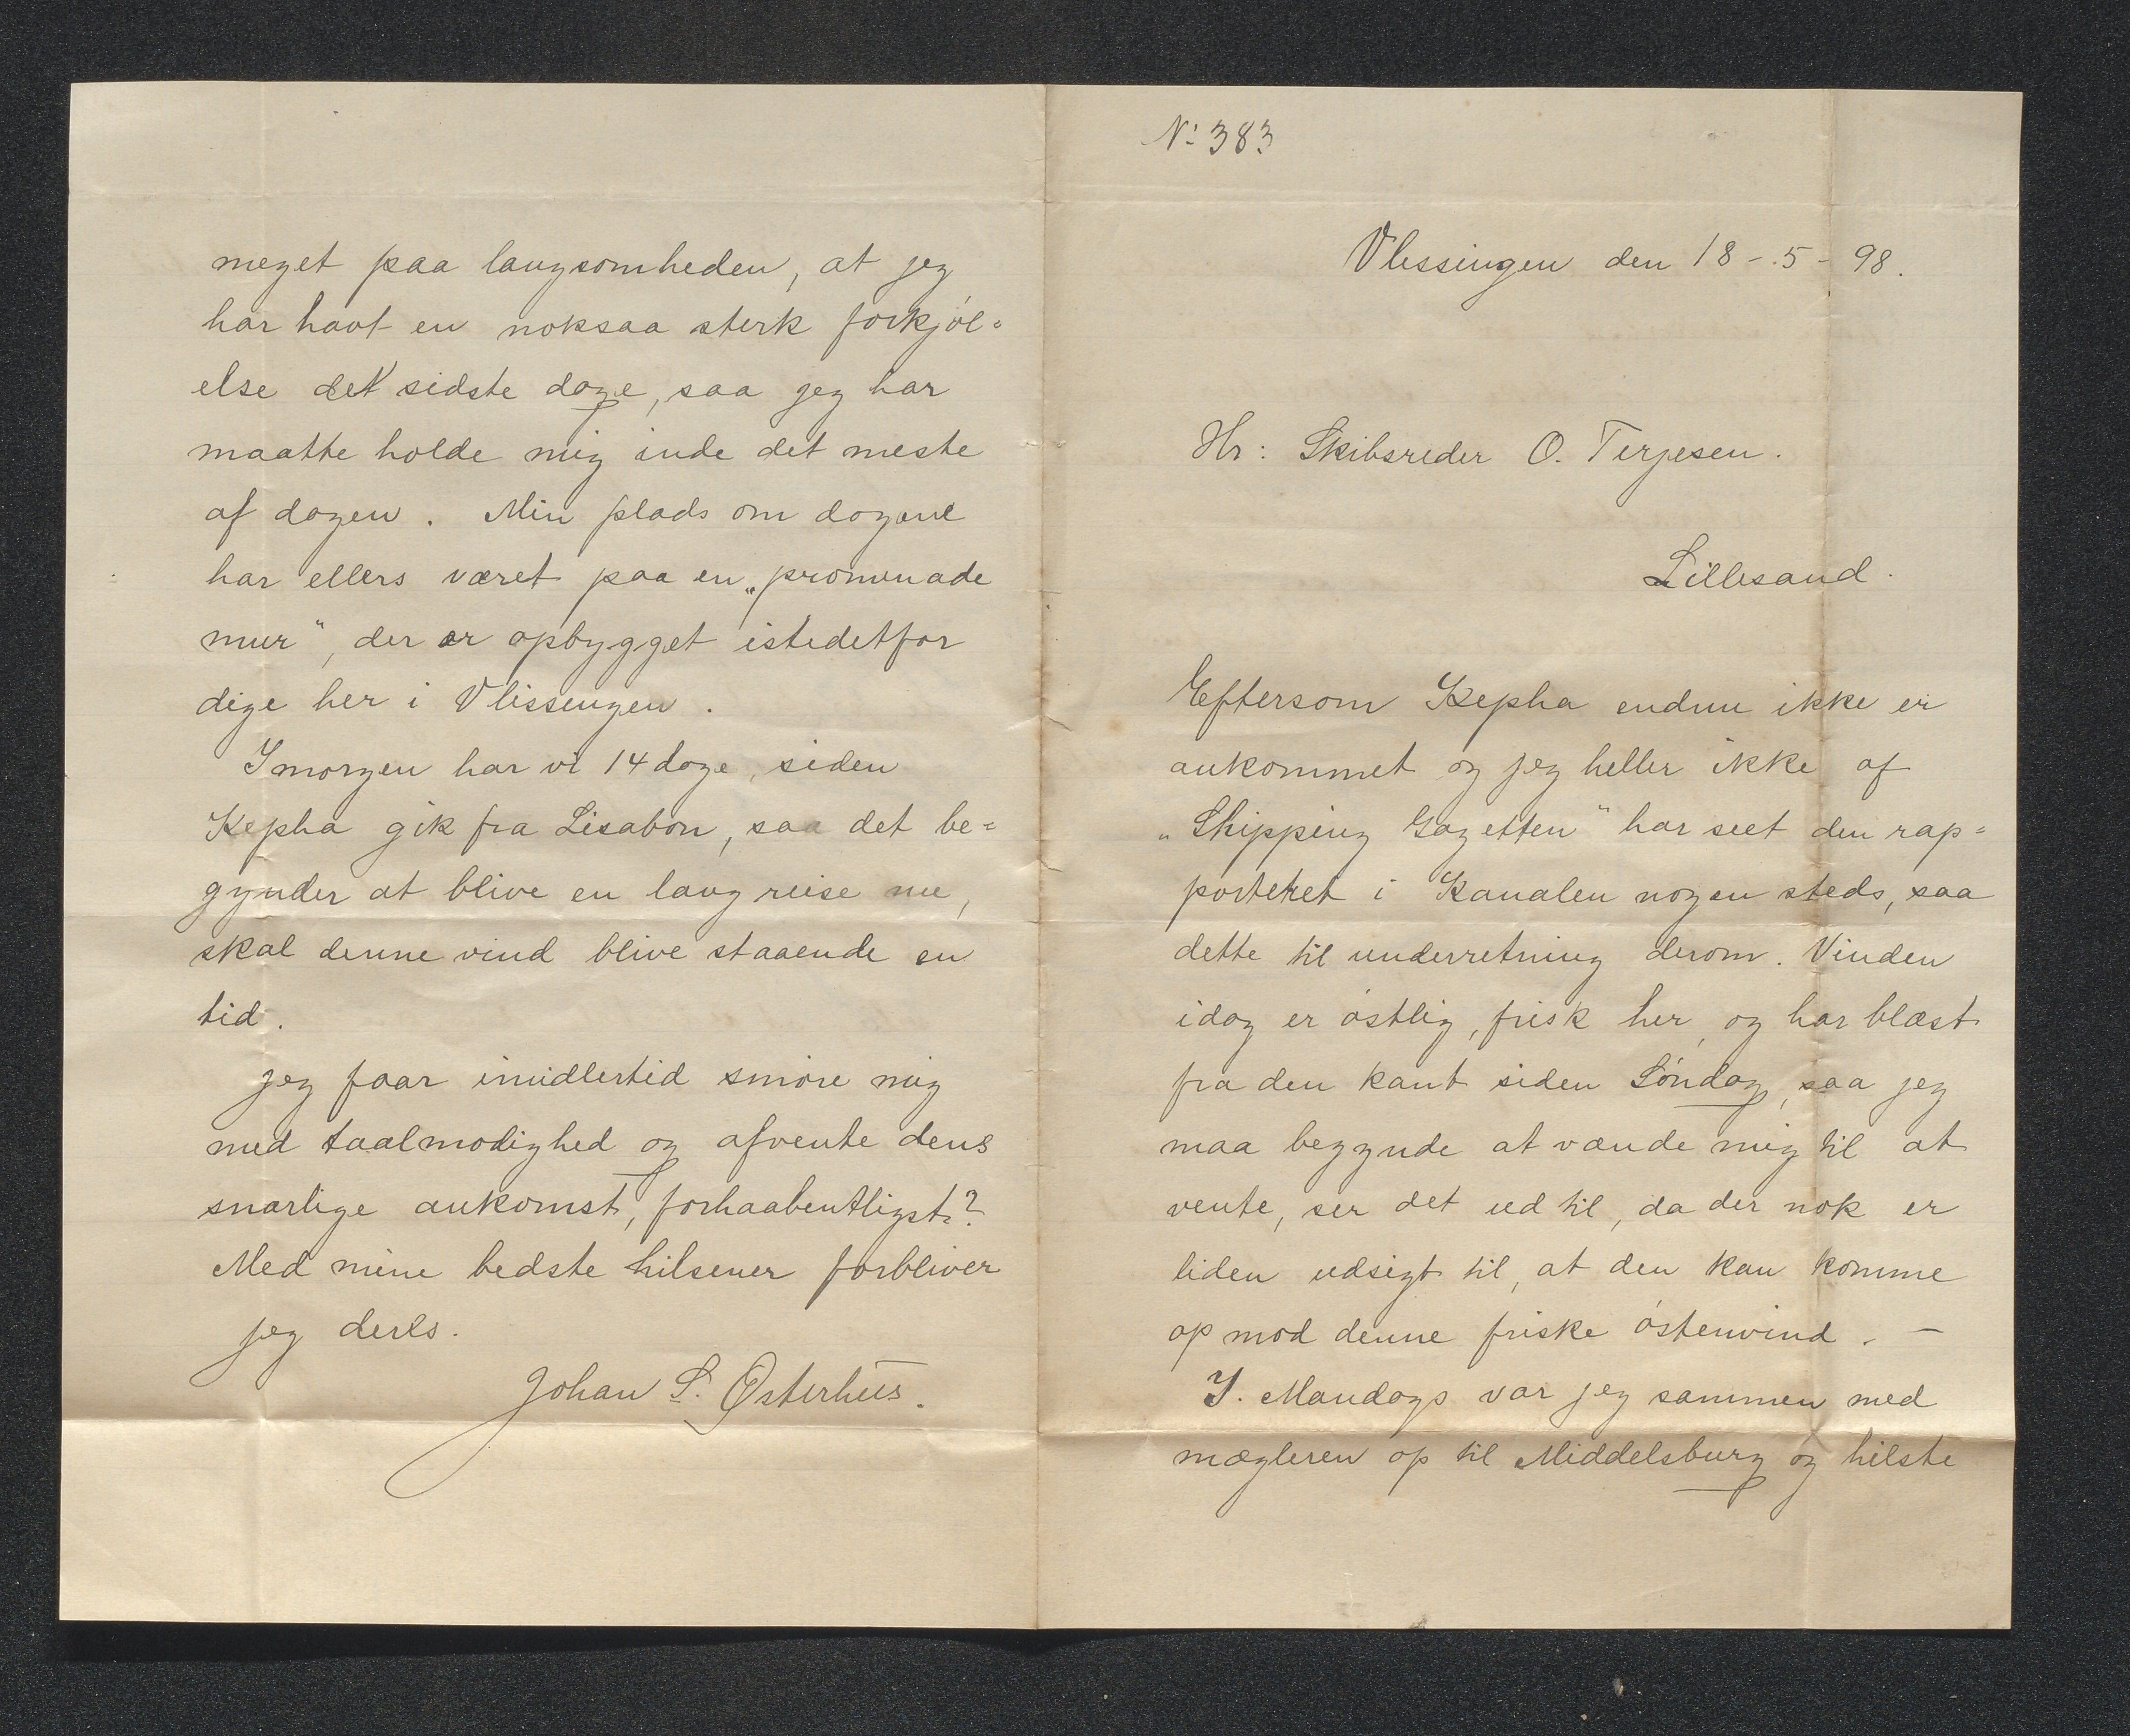 No: 383
Vlessingen den 18-5-98.
Hr: Skibsreder O. Terjesen.
Lillesand.
Eftersom Kepha endnu ikke er
ankommet og jeg heller ikke af
"Shipping Gazetten" har seet den rap=
porteret i Kanalen nogen steds, saa
dette til underretning derom. Vinden
idag er östlig, frisk her, og har blæst
fra den kant siden Söndag, saa jeg
maa begynde at vænde mig til at
vente, ser det ud til, da der nok er
liden udsigt til, at den kan komme
op mod denne friske östenvind. —
I. Mandags var jeg sammen med
mægleren op til Middelsburg og hilste
meget paa langsomheden, at jeg
har havt en noksaa sterk forkjöl=
else det sidste dage, saa jeg har
maatte holde mig inde det meste
af dagen. Min plads om dagene
har ellers været paa en „promenade
mur", der er opbygget istedetfor
dige her i Vlissengen.
Imorgen har vi 14 dage, siden
Kepha gik fra Lisabon, saa det be=
gynder at blive en lang reise nu,
skal denne vind blive staaende en
tid.
Jeg faar imidlertid smöre mig
med taalmodighed og afvente dens
snarlige ankomst, forhaabentligst?
Med mine bedste hilsener forbliver
jeg deres.
Johan S. Østerhus.